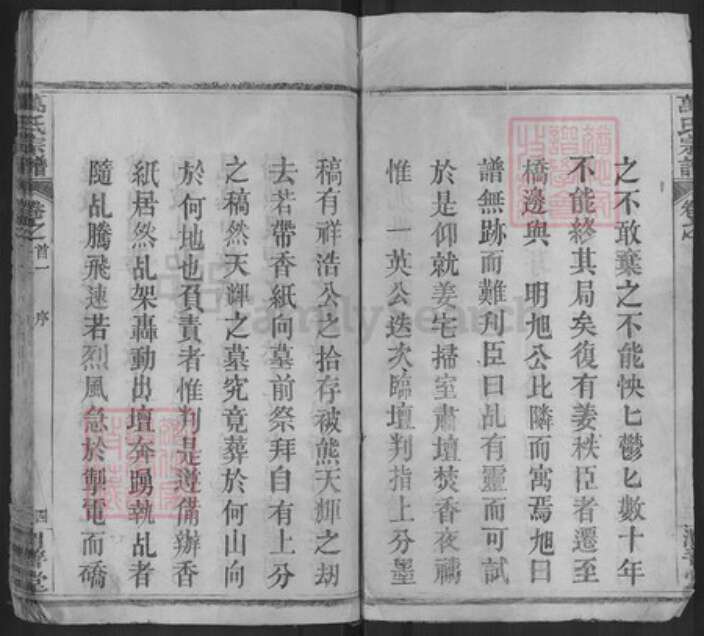 萬氏宗譜
卷之
之不敢棄之不能怏匕鬱匕數十年
不能終其局矣復有姜秩臣者遷至
橋邊與　明旭公比隣而寓焉旭曰
譜無跡而難判臣曰乩有靈而可試
於是仰就姜宅掃室肅壇焚香夜禱
惟　一英公迭次臨壇判指上分墨
稿有祥浩公之拾存被熊天輝之劫
去若帶香紙向墓前祭拜自有上分
之稿然天輝之墓究竟葬於何山向
於何地也負責者惟判是遵備辦香
紙居然乩架轟動出壇奔踴執乩者
隨乩騰飛速若烈風急於掣電而礄
萬氏宗譜
卷之
首一
序
四
FamilySearch